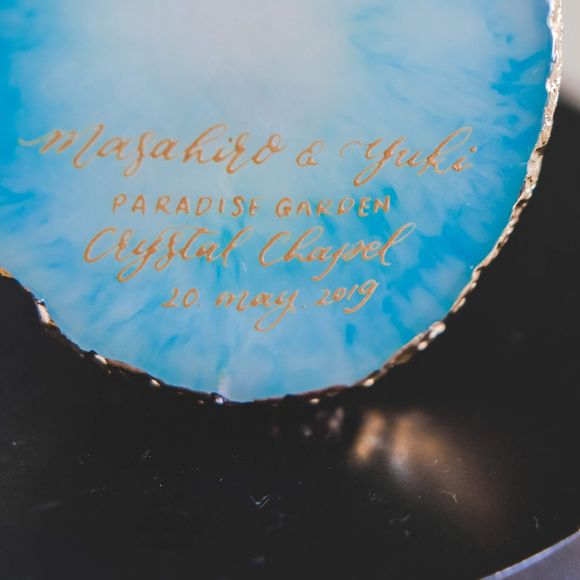 Masahiro & Yuki
PARADISE GARDEN
Crystal Chapel
20. may. 2019